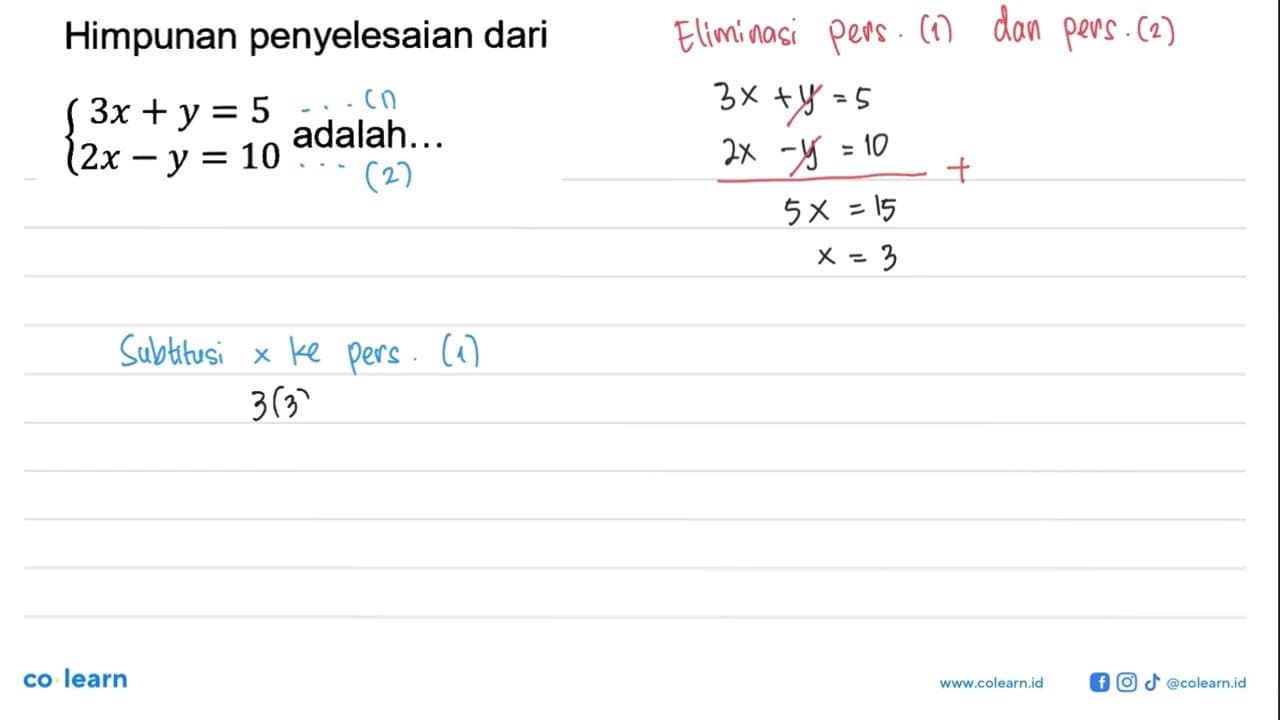 Himpunan penyelesaian dari
3x + y = 5 - . . (1)
2x − y = 10 . . . (2)
adalah...
Eliminasi pers. (1) dan pers. (2)
3x + y = 5
2x - y = 10
+
5x = 15
x = 3
Subtitusi x ke pers. (1)
3(3)
co learn
www.colearn.id
@colearn.id